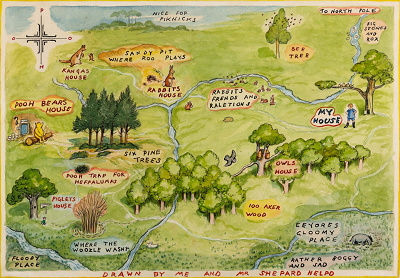 NICE FOR
PIKNICKS
TO NORTH POLE
BIG
STONES
AND
ROX
SANDY PIT
WHERE ROO PLAYS
BEE
TREE
KANGAS
HOUSE
RABBITS
HOUSE
RABBITS
FRENDS AND
RALETIONS
POOH BEARS
HOUSE
MY
HOUSE
SIX PINE
TREES
POOH TRAP FOR
HEFFALUMPS
OWLS
HOUSE
PIGLETS
HOUSE
100 AKER
WOOD
EEYORES
GLOOMY
PLACE
WHERE THE
WOOZLE WASNT
FLOODY
PLACE
RATHER BOGGY
AND SAD
DRAWN BY ME AND MR SHEPARD HELPD